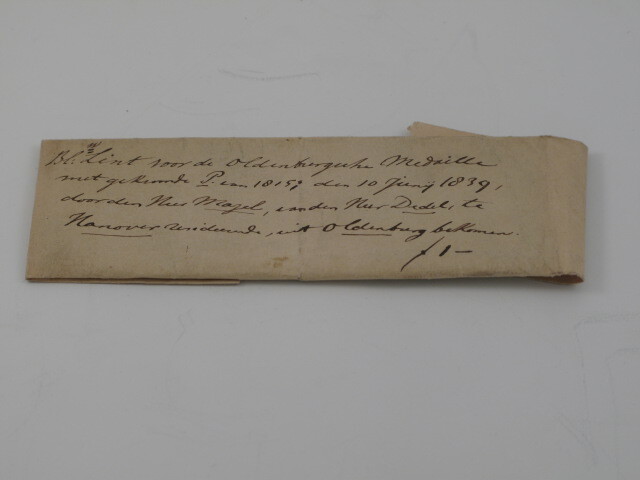 Lint voor de Oldenburgsche Medaille
met gekroonde P. van 1815; den 10 Junij 1839,
door den Heer Mazel, van den Heer Dedel, te
Hanover resideerende, uit Oldenburg bekomen.
f 1-